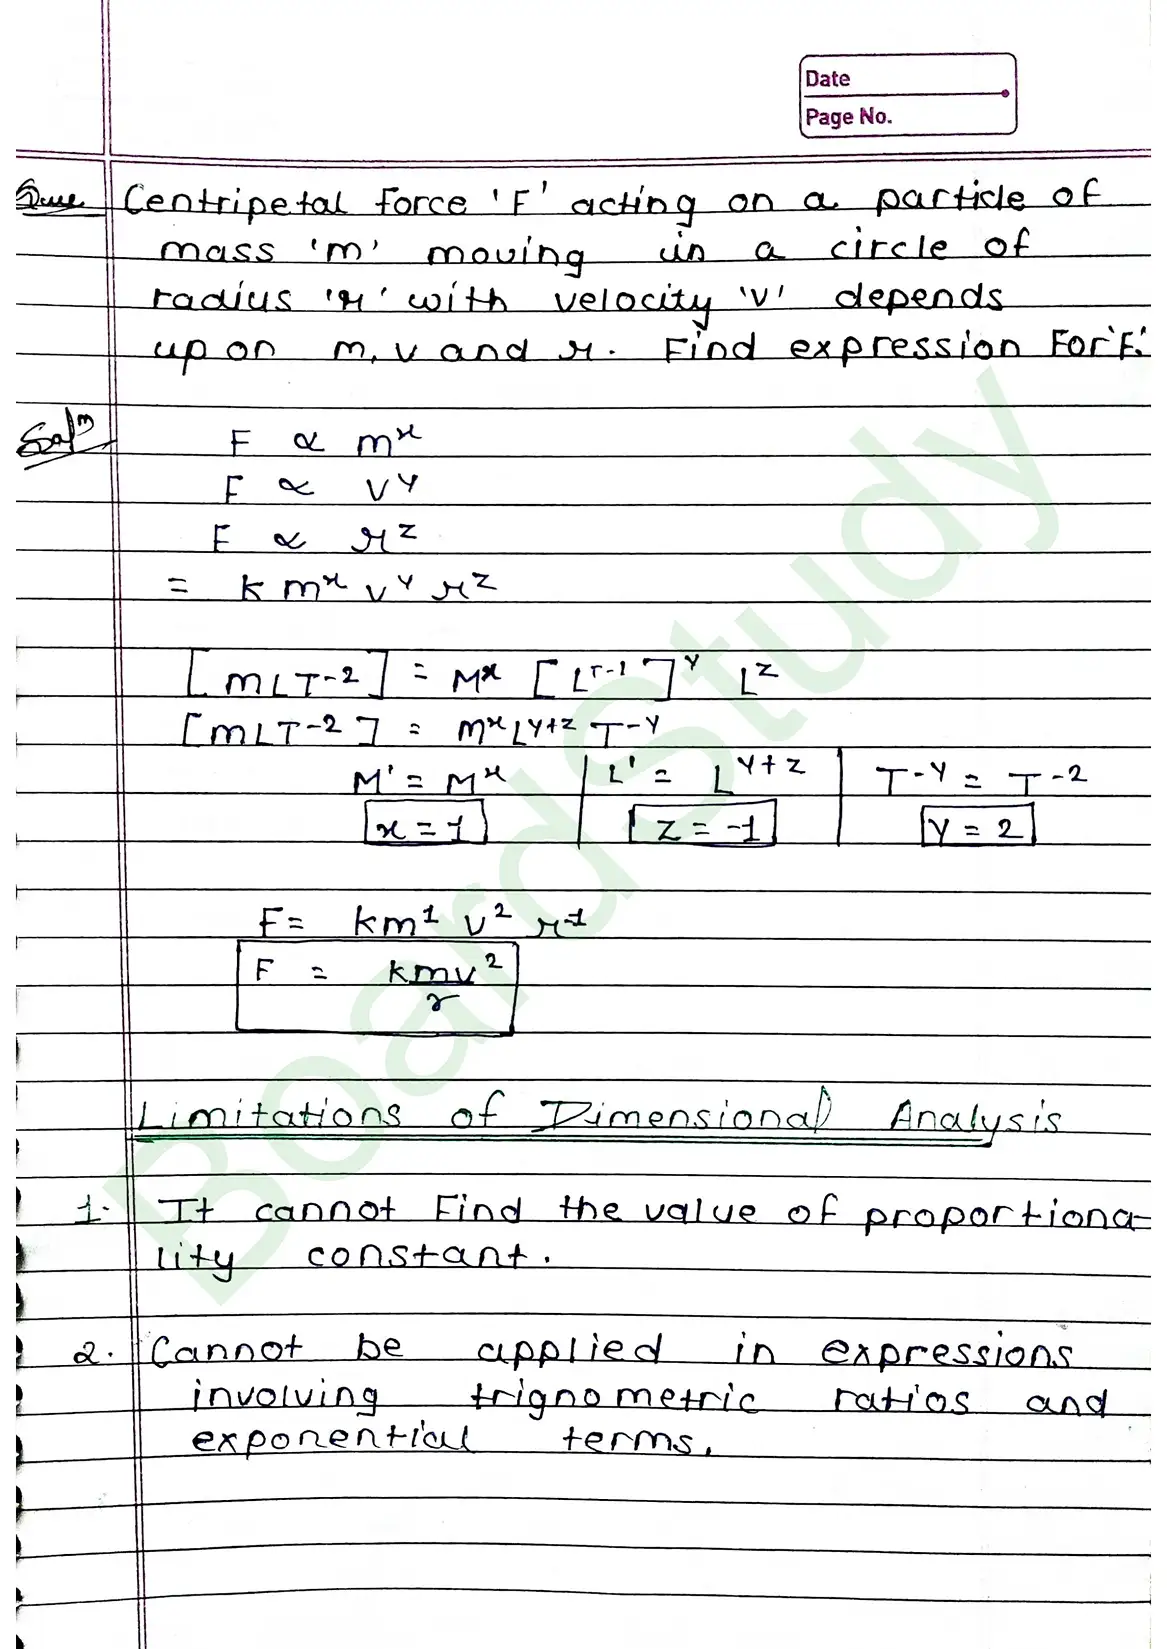 Date
Page No.
Que Centripetal force 'F' acting on a particle of
mass 'm' moving in a circle of
radius 'r' with velocity 'v' depends
upon m, v and r. Find expression For 'F'.
Solⁿ F ∝ mˣ
F ∝ vʸ
F ∝ rᶻ
= k mˣ vʸ rᶻ
[MLT⁻²] = Mˣ [LT⁻¹]ʸ Lᶻ
[MLT⁻²] = MˣLʸ⁺ᶻ T⁻ʸ
M¹ = Mˣ L¹ = Lʸ⁺ᶻ T⁻ʸ = T⁻²
x = 1 z = -1 y = 2
F = km¹ v² r⁻¹
F = kmv²
r
Limitations of Dimensional Analysis
1. It cannot Find the value of proportiona-
lity constant.
2. Cannot be applied in expressions
involving trignometric ratios and
exponential terms.
BoardStudy